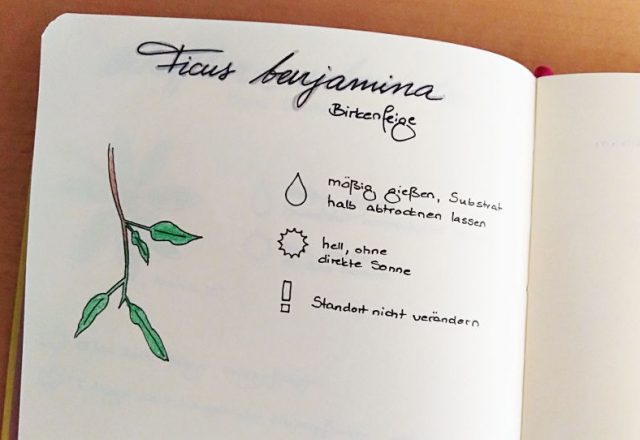 Ficus benjamina
Birkenfeige
mäßig gießen, Substrat
halb abtrocknen lassen
hell, ohne
direkte Sonne
Standort nicht verändern